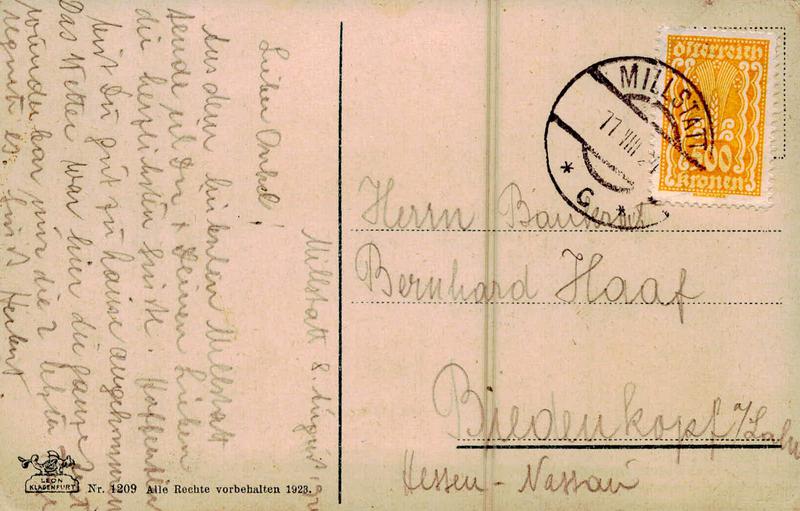 Millstatt 8. August
Lieber Onkel!
Aus dem schönsten Millstatt
sende ich Dir & Deinen Lieben
die herzlichsten Grüße. Hoffentlich
bist Du gut zu hause angekommen
Das Wetter war hier die ganze Zeit
wunderbar nur die 2 letzten Tage
regnet es. Gruß Herbert
Österreich
500
Kronen
MILLSTATT
VIII 24
* G *
Herrn
Bernhard Haaf
Biedenkopf a/Lahn
Hessen-Nassau
LEON
KLAGENFURT
Nr. 1209 Alle Rechte vorbehalten 1923.